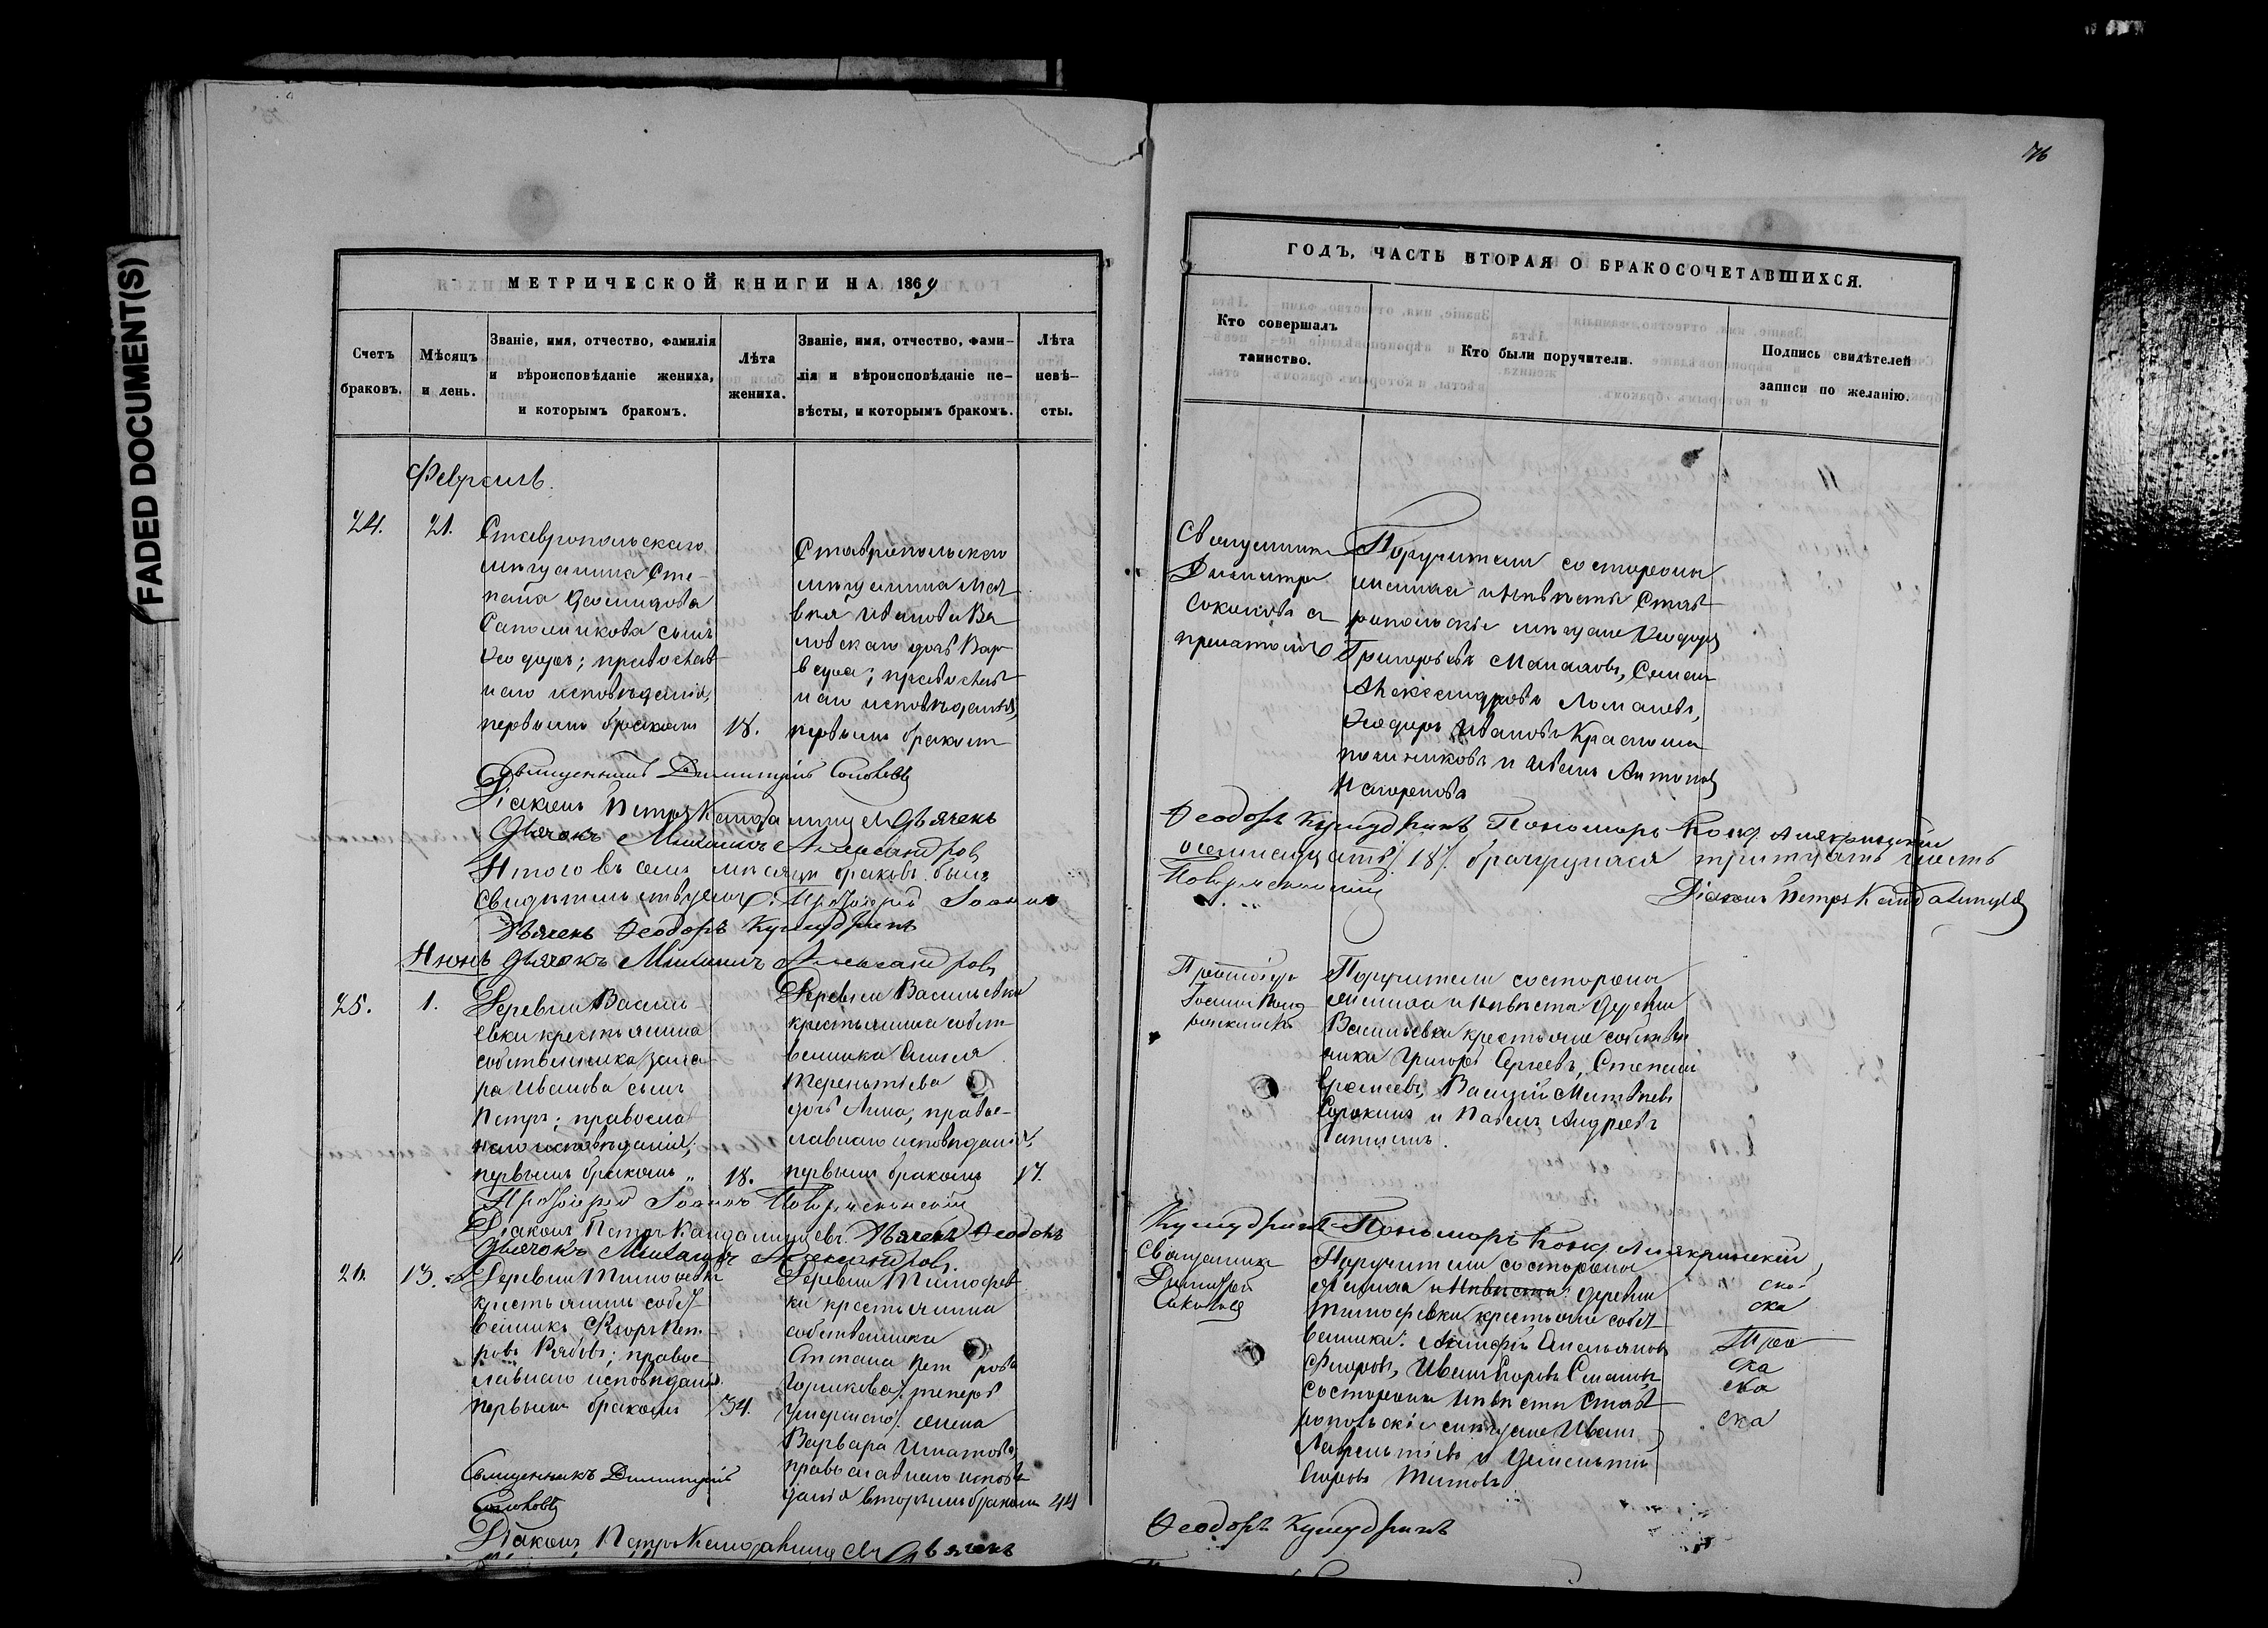 FADED DOCUMENT(S)
76
МЕТРИЧЕСКОЙ КНИГИ НА 1869
Счетъ браковъ.
Мѣсяцъ и день.
Званіе, имя, отчество, фамилія
и вѣроисповѣданіе жениха,
и которымъ бракомъ.
Лѣта
жениха.
Званіе, имя, отчество, фами-
лія и вѣроисповѣданіе не-
вѣсты, и которымъ бракомъ.
Лѣта
невѣ-
сты.
Февраль.
24.
21.
Ставропольскаго
мѣщанина Сте-
пана
Сапожникова сынъ
Ѳеодоръ; православ
наго исповѣданія,
первымъ бракомъ
18.
Ставропольскаго
мѣщанина Мат
вѣя Иванова
дочь Вар
вара; православ
наго исповѣданія,
первымъ бракомъ
Священникъ Димитрій Соколовъ
Діаконъ Петръ Кандалинцевъ Дьячекъ
Дьячокъ Михаилъ Александровъ
Итого въ семъ мѣсяцѣ браковъ было
Свидѣтельствуемъ: Протоіерей Іоаннъ
Дьячекъ Ѳеодоръ Кумудринъ
Іюнь Дьячокъ Михаилъ Александровъ
25.
1.
Деревни Василь-
евки крестьянина
собственника Заха-
ра Иванова сынъ
Петръ; православ
наго исповѣданія;
первымъ бракомъ „
18.
Деревни Васильевки
крестьянина собст-
венника
Терентіева
дочь Анна, право-
славнаго исповѣданія,
первымъ бракомъ
17.
Протоіерей Іоаннъ
Діаконъ Петръ Кандалинцевъ. Дьячекъ Ѳеодоръ
Дьячокъ Михаилъ Александровъ.
26.
13.
Деревни Тимофевки
крестьянинъ собст
венникъ Егоръ Пет
ровъ Рябовъ; право-
славнаго исповѣданія
первымъ бракомъ
34.
Деревни Тимофев
ки крестьянина
собственника
Антона Петрова
Горшкова/: теперь
умершаго/: жена
Варвара Игнатова,
православнаго исповѣ
данія вторымъ бракомъ
44
Священникъ Димитрій
Соколовъ
Діаконъ Петръ Кандалинцевъ Дьячекъ
ГОДЪ, ЧАСТЬ ВТОРАЯ О БРАКОСОЧЕТАВШИХСЯ.
Кто совершалъ
таинство.
Кто были поручители.
Подпись свидѣтелей
записи по желанію.
Священникъ
Димитрій
Соколовъ съ
причтомъ
Поручители со стороны
жениха и невѣсты Став
ропольскіе мѣщане Ѳеодоръ
Григорьевъ Маталовъ, Семенъ
Александровъ Ломаневъ,
Ѳеодоръ Ивановъ Красноша
почниковъ и Иванъ Антоновъ
Ѳеодоръ Кумудринъ Пономарь Конд. Алякринскій
осемнадцать/: 18/:
Діаконъ Петръ Кандалинцевъ
Протоіерей
Іоаннъ
Поручители со стороны
жениха и невѣсты деревни
Васильевки крестьяне собствен
ники Григорій Сергеевъ, Степанъ
Еремеевъ, Василій Матвѣевъ
Сорокинъ и Павелъ Андреевъ
Кумудринъ Пономарь Конд. Алякринскій
Священникъ
Димитрій
Соколовъ
Поручители со стороны
жениха и невѣсты: деревни
Тимофевки крестьяне собст
венники: Емельяновъ
Фторовъ, Иванъ Егоровъ
со стороны невѣсты Став
ропольскіе мѣщане Иванъ
Лаврентіевъ и
Егоровъ Титовъ
ска
ска
ска
ска
Ѳеодоръ Кумудринъ